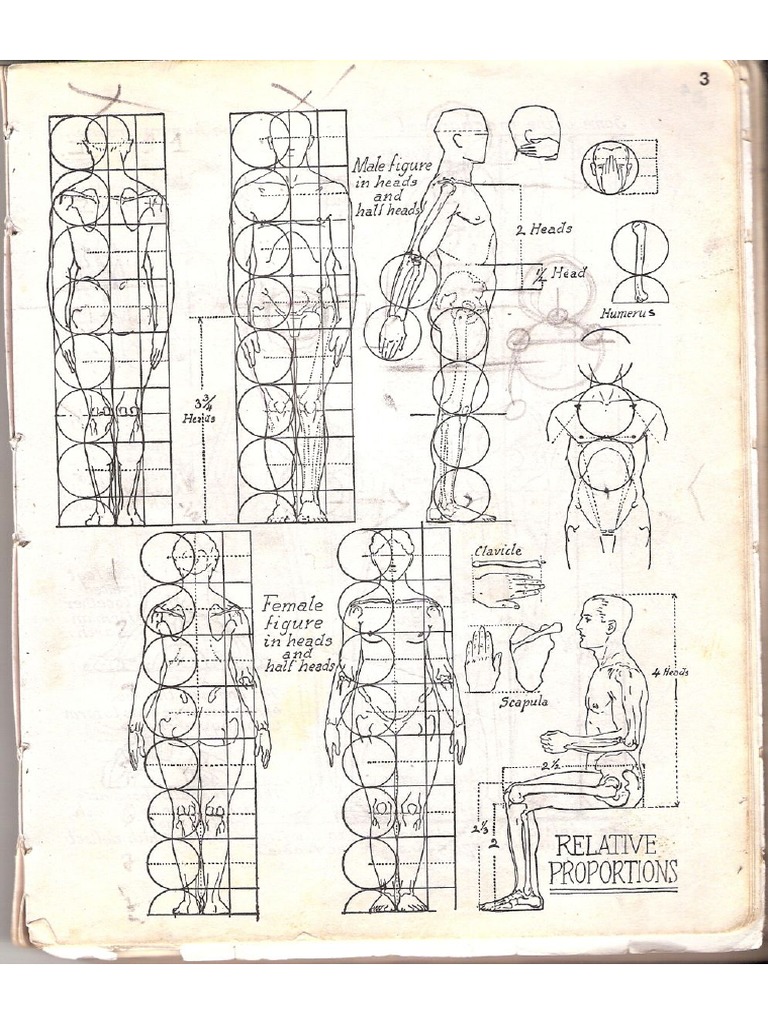 3
Male figure
in heads
and
half heads
2 Heads
1/2 Head
Humerus
3 3/4
Heads
Clavicle
Female
figure
in heads
and
half heads
Scapula
4 Heads
2 1/2
2 1/3
2
RELATIVE
PROPORTIONS